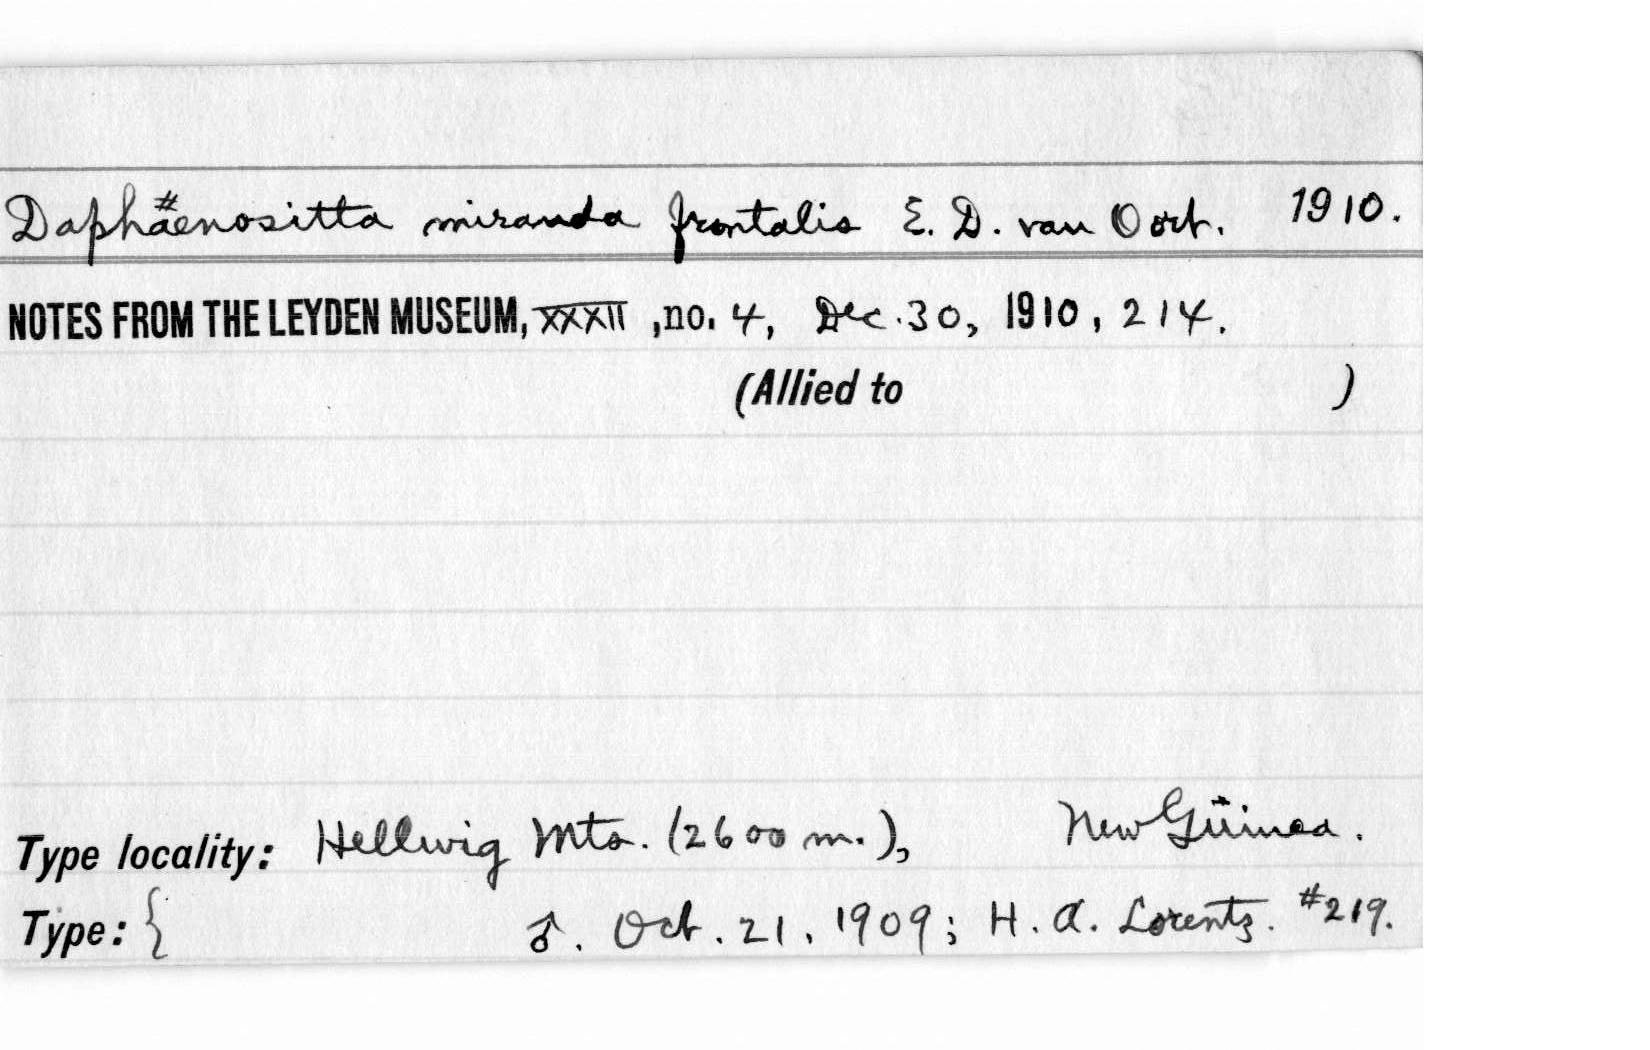 Daphaenositta miranda frontalis E. D. van Oort. 1910.
NOTES FROM THE LEYDEN MUSEUM, XXXII, no. 4, Dec. 30, 1910, 214.
(Allied to )
Type locality: Hellwig Mts. (2600 m.), New Guinea.
Type: { ♂. Oct. 21, 1909; H. A. Lorentz. #219.